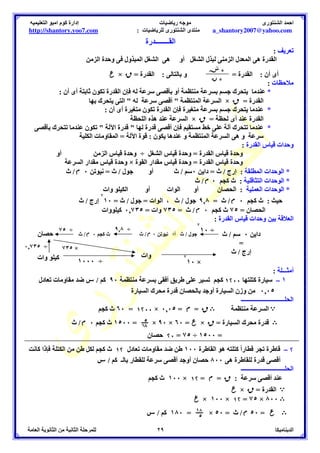 احمد الشنتورى
موجه رياضيات
إدارة كوم امبو التعليميه
a_shantory2007@yahoo.com
منتدى الشنتورى للرياضيات :
http://shantory.yoo7.com
القـــــــدرة
تعريف :
القدرة هى المعدل الزمنى لبذل الشغل أو هى الشغل المبذول فى وحدة الزمن
أى أن : القدرة = و بالتالى : القدرة = ق × ع
ملاحظات :
* عندما يتحرك جسم بسرعة منتظمة أو بأقصى سرعة له فإن القدرة تكون ثابتة أى أن :
القدرة = ق × السرعة المنتظمة " أقصى سرعة له " التى يتحرك بها
* عندما يتحرك جسم بسرعة متغيرة فإن القدرة تكون متغيرة أى أن :
القدرة عند أى لحظة = ق × السرعة عند هذه اللحظة
* عندما تتحرك آلة على خط مستقيم فإن أقصى قدرة لها " قدرة الآلة " تكون عندما تتحرك بأقصى
سرعة و هى السرعة المنتظمة و عندها يكون : قوة الآلة = المقاومات الكلية
وحدات قياس القدرة :
وحدة قياس القدرة = وحدة قياس الشغل ÷ وحدة قياس الزمن أو
وحدة قياس القدرة = وحدة قياس مقدار القوة × وحدة قياس مقدار السرعة
* الوحدات المطلقة : إرج / ث = داين ٠ سم / ث أو جول / ث = نيوتن ٠ م / ث
* الوحدات التثاقلية : ث كجم ٠ م / ث
* الوحدات العملية : الحصان أو الوات أو الكيلو وات
حيث : ث كجم ٠ م / ث = ٩,٨ جول / ث ، الوات = جول / ث = ١٠ إرج / ث
الحصان = ٧٥ ث كجم ٠ م / ث = ٧٣٥ وات = ٠,٧٣٥ كيلووات
العلاقة بين وحدات قياس القدرة :
داين ٠ سم / ث = إرج / ث
جول / ث أو نيوتن ٠ م / ث
ث كجم ٠ م / ث
حصان
وات
كيلو وات
٩,٨ ÷
٧٥ ÷
٧٣٥ ×
٠,٧٣٥ ÷
١٠٠٠ ÷
أمثـــلة :
١ – سيارة كتلتها ١٢٠٠ كجم تسير على طريق أفقى بسرعة منتظمة ٩٠ كم / س ضد مقاومات تعادل
٠,٠٥ من وزن السيارة أوجد بالحصان قدرة محرك السيارة
الحلـــــــــــــــــ
∵ السرعة منتظمة ∴ ق = م = ٠,٠٥ × ١٢٠٠ = ٦٠ ث كجم
∴ قدرة محرك السيارة = ق × ع = ٦٠ × ٩٠ × ٥/١٨ = ١٥٠٠ ث كجم ٠ م / ث
= ١٥٠٠ ÷ ٧٥ = ٢٠ حصان
٢ – قاطرة تجر قطاراً كتلته هو القاطرة ١٠٠ طن ضد مقاومات تعادل ١٢ ث كجم لكل طن من الكتلة فإذا كانت
أقصى قدرة للقاطرة هى ٨٠٠ حصان أوجد أقصى سرعة للقطار بالـ كم / س
الحلـــــــــــــــــ
عند أقصى سرعة : ق = م = ١٢ × ١٠٠ ث كجم
∵ القدرة = ق × ع
∴ ٨٠٠ × ٧٥ = ١٢ × ١٠٠ × ع
∴ ع = ٥٠ م / ث = ٥٠ × ١٨/٥ = ١٨٠ كم / س
الديناميكا
٢٩
للمرحلة الثانية من الثانوية العامة